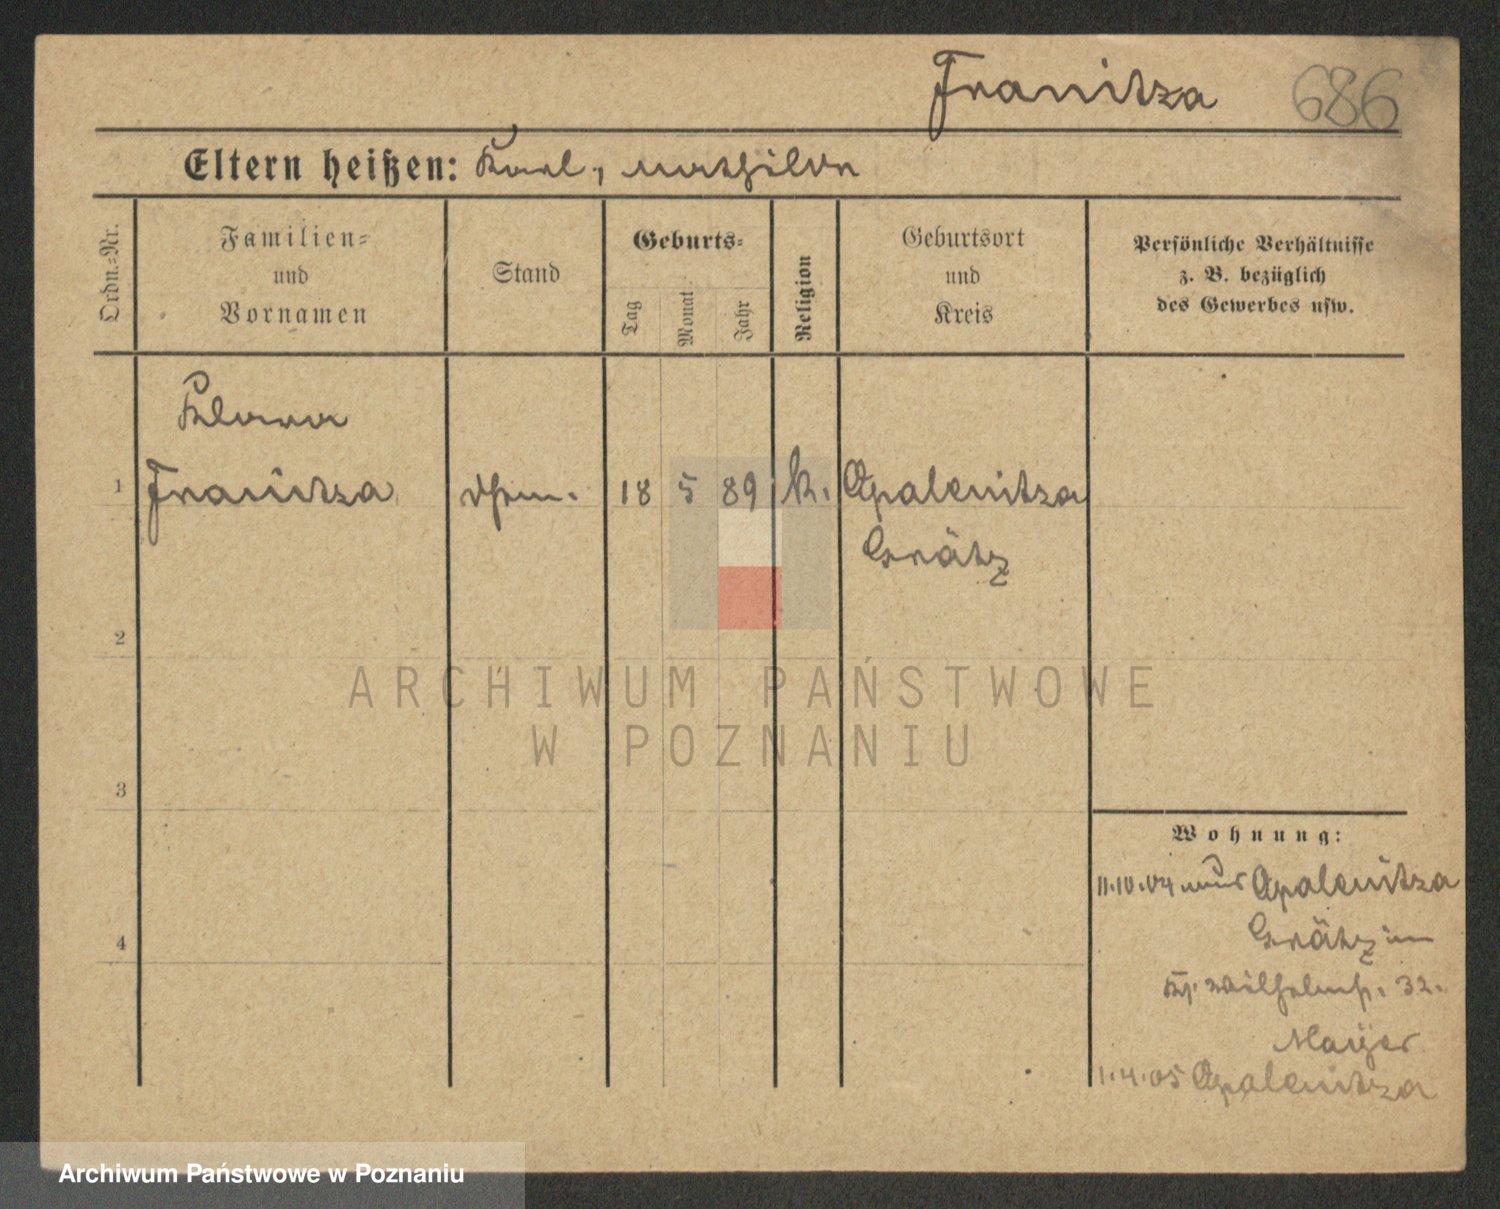 Franitza 686
Eltern heißen: Karl, Mathilde
Ordn.-Nr.
Familien-
und
Vornamen
Stand
Geburts-
Tag
Monat
Jahr
Religion
Geburtsort
und
Kreis
Persönliche Verhältnisse
z. B. bezüglich
des Gewerbes usw.
Klara
1 Franitza 18 5 89 k. Opalenitza
Grätz
2
ARCHIWUM PAŃSTWOWE
W POZNANIU
3
Wohnung:
11.10.04 aus Opalenitza
4
Grätz in
Wilhelmstr. 32.
Mayer
1.4.05 Opalenitza
Archiwum Państwowe w Poznaniu